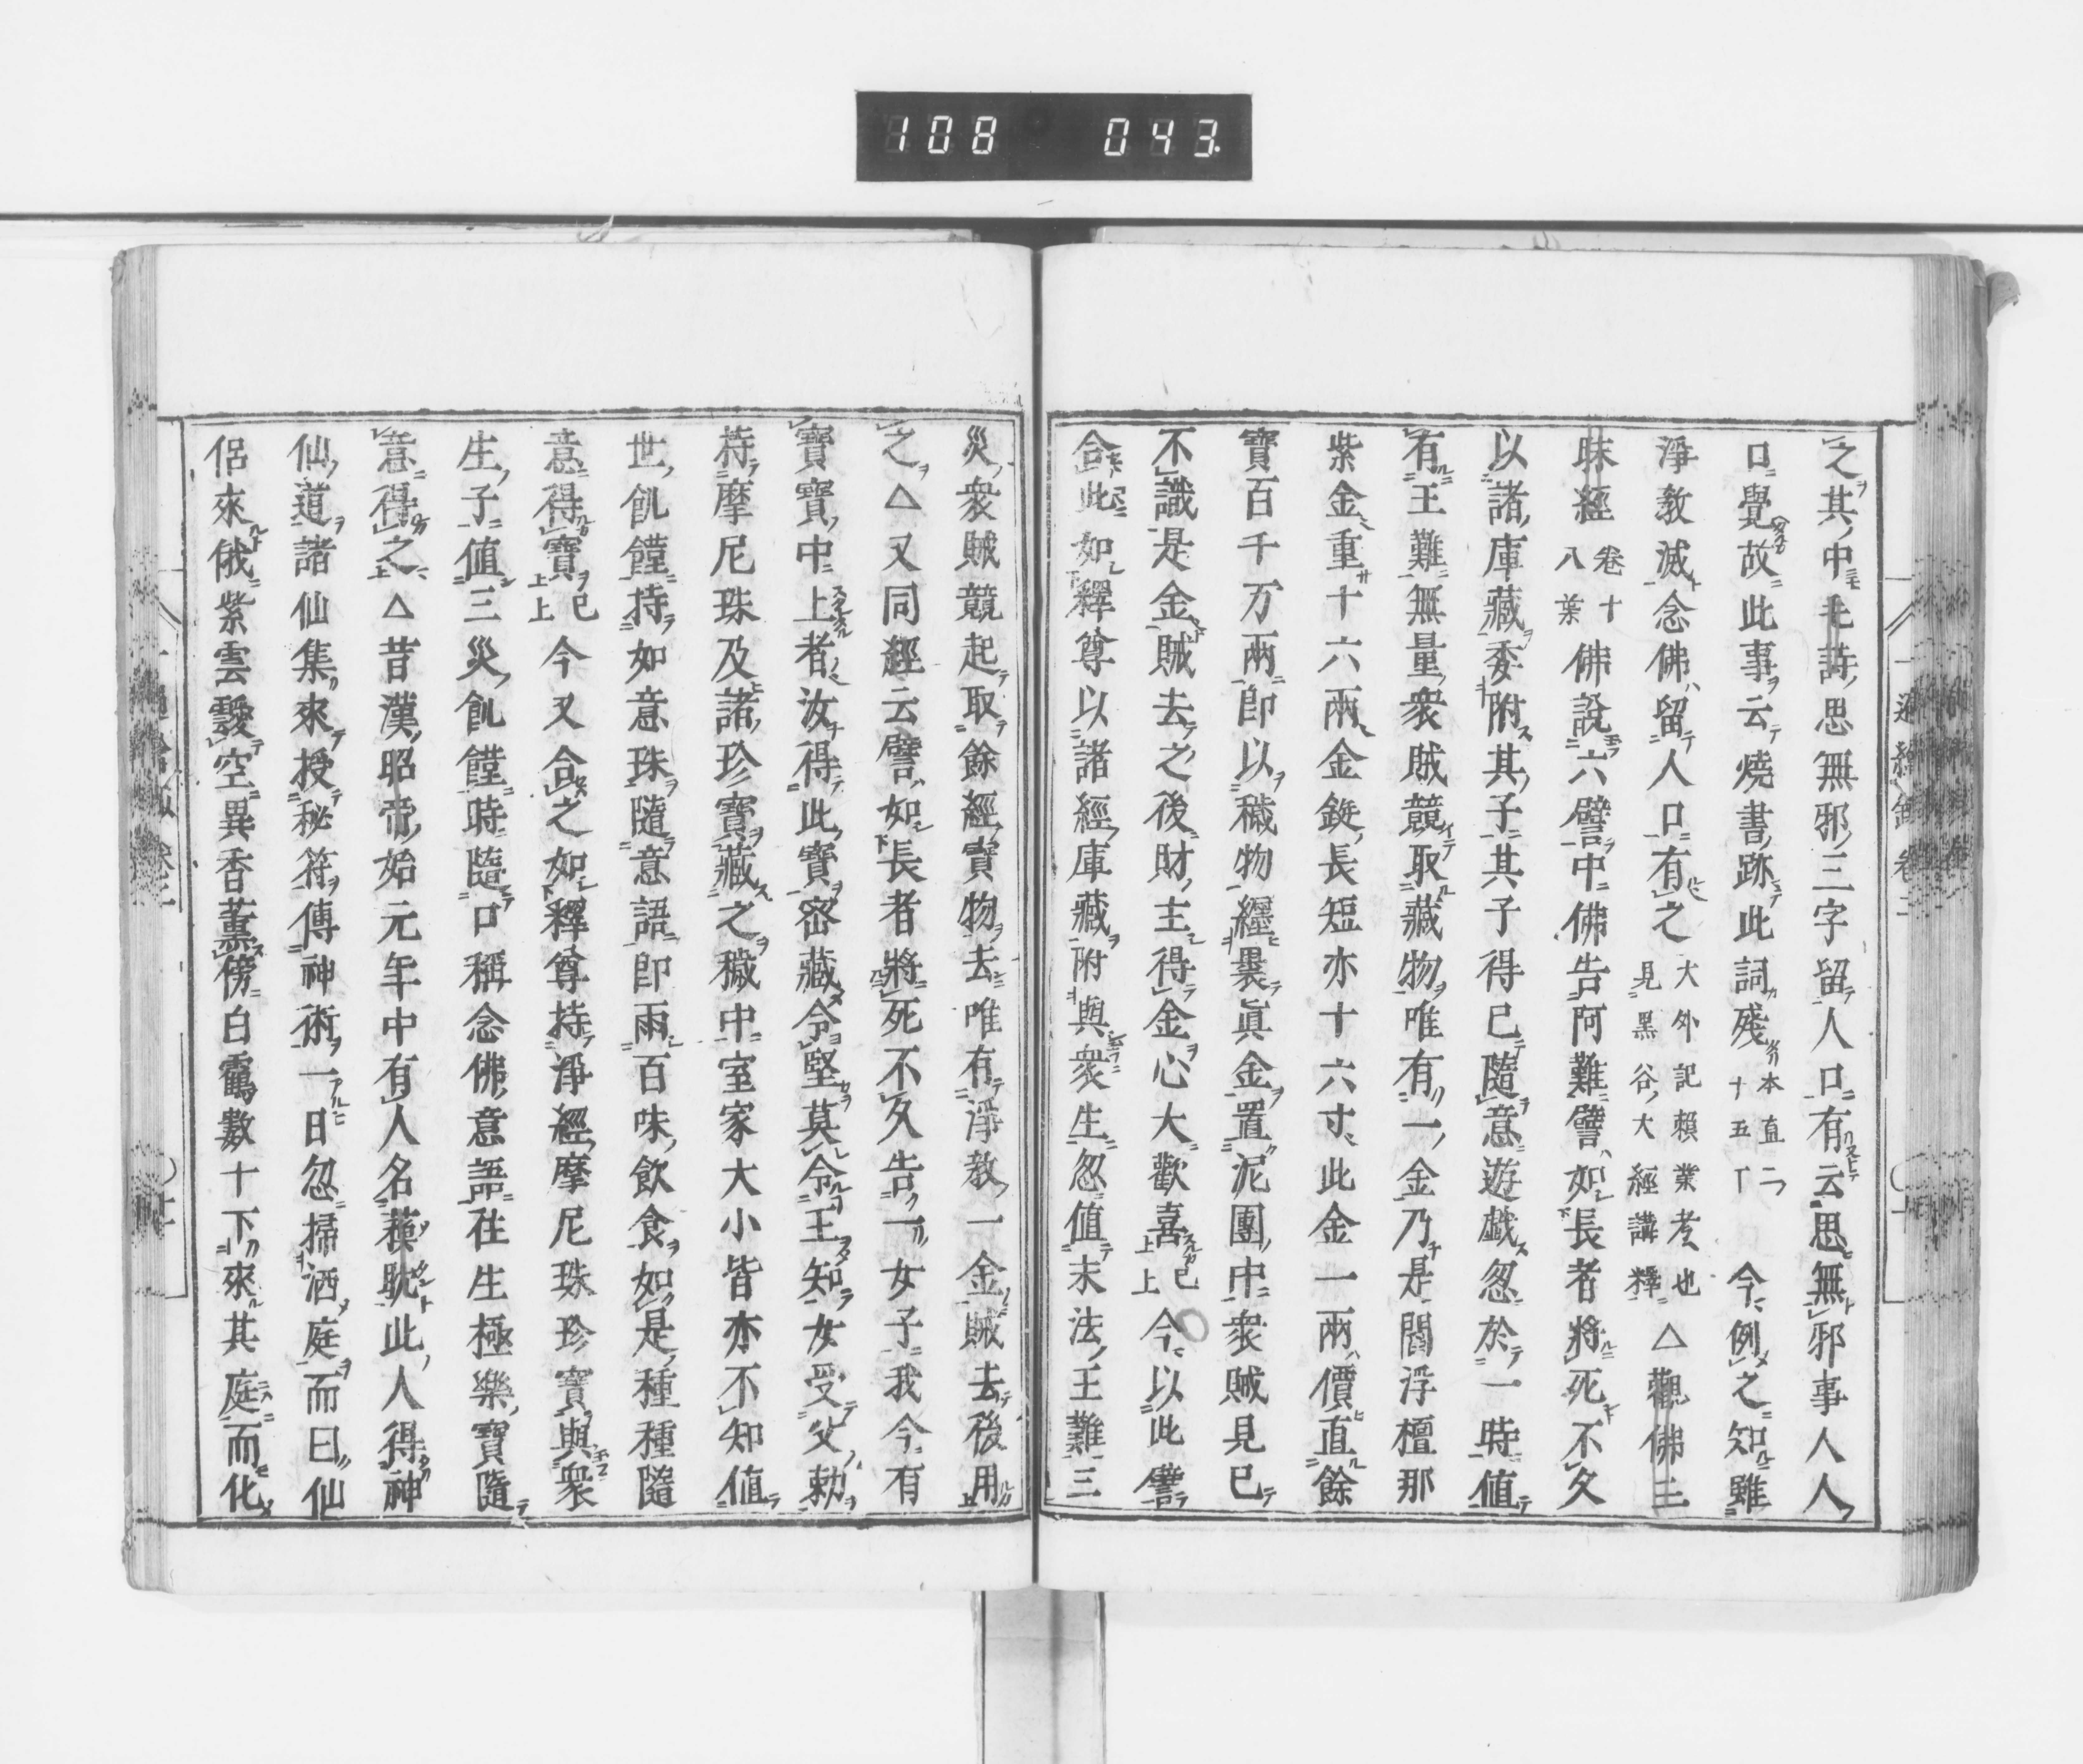 108 043
之其中毛詩思無邪三字留人口有云思無邪事人人
口覺故此事云燒書跡此詞殘本直二十五丁今例之知雖
淨教滅念佛留人口有之大外記賴業考也見黑谷大經講釋△觀佛三
昧經卷十八葉佛說六譬中佛告阿難譬如長者將死不久
以諸庫藏委附其子其子得已隨意遊戲忽於一時值
有王難無量衆賊競取藏物唯有一金乃是閻浮檀那
紫金重十六兩金鋌長短亦十六寸此金一兩價直餘
寶百千万兩即以穢物纒裹眞金置泥團中衆賊見已
不識是金賊去之後財主得金心大歡喜已上今以此譬
合此如釋尊以諸經庫藏附與衆生忽值末法王難三
災衆賊競起取餘經寶物去唯有淨教一金賊去後用
之△又同經云譬如長者將死不久告一女子我今有
寶寶中上者汝得此寶密藏令堅莫令王知女受父勅
持摩尼珠及諸珍寶藏之穢中室家大小皆亦不知值
世飢饉持如意珠隨意語即雨百味飲食如是種種隨
意得寶已上今又合之如釋尊持淨經摩尼珠珍寶與衆
生子值三災飢饉時隨口稱念佛意語往生極樂寶隨
意得之△昔漢昭帝始元年中有人名蘓耽此人得神
仙道諸仙集來授秘符傳神術一日忽掃洒庭而曰仙
侶來俄紫雲靉空異香薰傍白鶴數十下來其庭而化